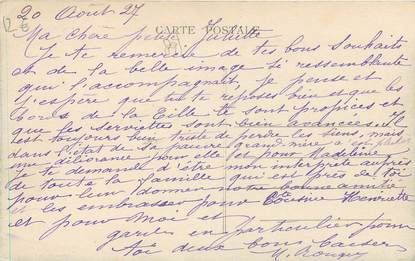 20 Août 27
CARTE POSTALE
Ma chère petite Juliette
Je te remercie de tes bons souhaits
et de la belle image si ressemblante
qui l'accompagnait je pense et
j'espère que tu te reposes bien et que les
bords de la Tille te sont propices et
que les serviettes sont bien avancées. Il
est toujours bien triste de perdre les siens, mais
dans l'état de sa pauvre grand-mère c'est
une délivrance pour elle et pour Madeleine
Je te demande d'être mon interprète auprès
de toute la famille qui est près de toi
pour leur donner notre bonne amitié
et les embrasser pour Cousine Henriette
et pour moi et
garde en particulier pour
toi deux bons baisers